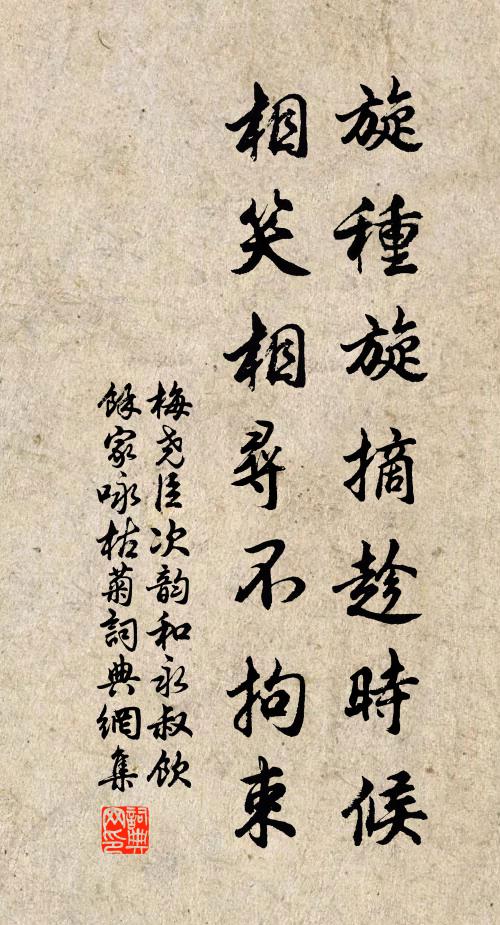 旋種旋摘趁時候
相笑相尋不拘束
梅堯臣次韵和永叔飲
餘家咏枯菊詞典網集
詞典
网印